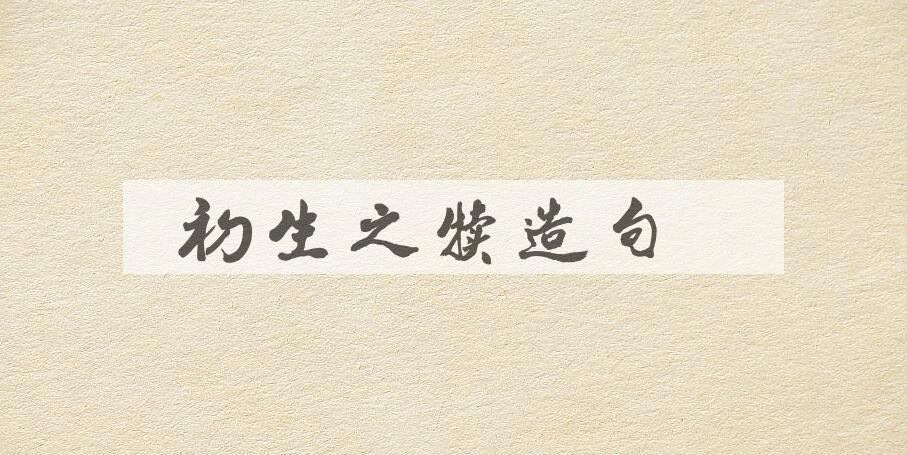 初生之犊造句